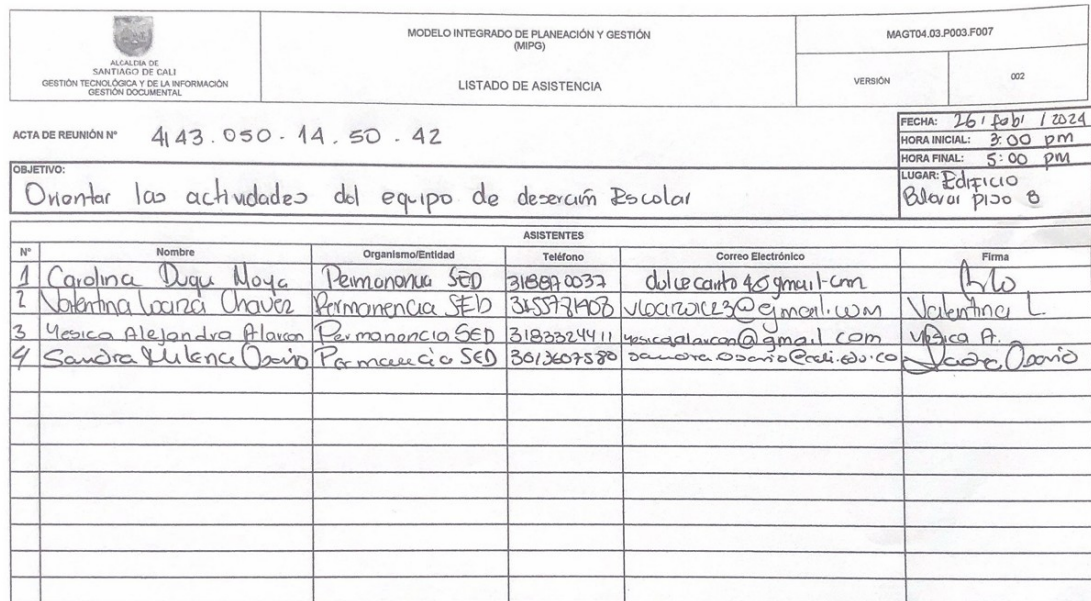 ALCALDÍA DE
SANTIAGO DE CALI
GESTIÓN TECNOLÓGICA Y DE LA INFORMACIÓN
GESTIÓN DOCUMENTAL
MODELO INTEGRADO DE PLANEACIÓN Y GESTIÓN
(MIPG)
LISTADO DE ASISTENCIA
MAGT04.03.P003.F007
VERSIÓN 002
ACTA DE REUNIÓN N° 4143.050-14.50-42
FECHA: 26 / feb / 2024
HORA INICIAL: 3:00 pm
HORA FINAL: 5:00 pm
LUGAR: Edificio
piso 8
OBJETIVO:
Orientar las actividades del equipo de deserción Escolar
ASISTENTES
N° Nombre Organismo/Entidad Teléfono Correo Electrónico Firma
1 Carolina Duqu Moya Permanencia SED
2 Valentina Chavez Permanencia SED Valentina L.
3 Yesica Alejandra Alarcon Permanencia SED 3183324411 yesicaalarcon@gmail.com Yesica A.
4 Sandra Milena Osorio Permanencia SED 3013607580 sandra.osorio@cali.edu.co Sandra Osorio